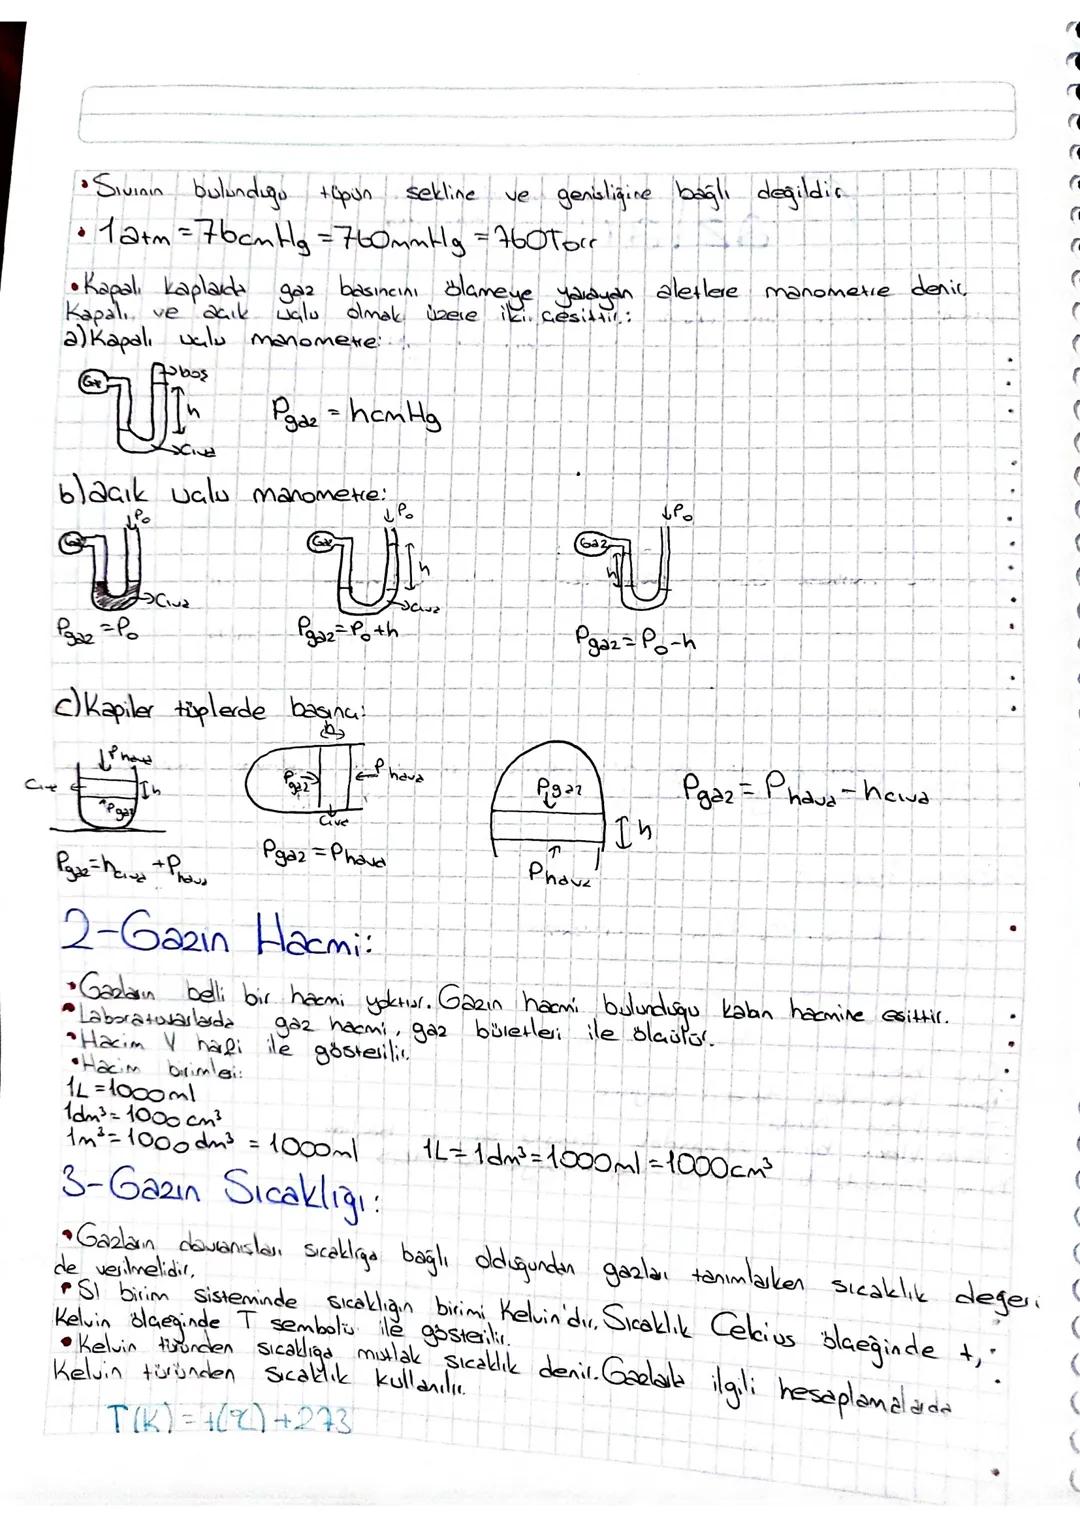 • Sıvının bulunduğu tüpün şekline ve genişliğine bağlı değildir
• 1atm = 76cmHg = 760mmHg = 760Torr
• Kapalı kaplarda gaz basıncını ölçmeye yarayan aletlere manometre denir,
Kapalı ve açık uçlu olmak üzere iki çeşittir:
a) Kapalı uçlu manometre:
boş
Gaz
h
Pgaz = hcmHg
Civa
b) açık uçlu manometre:
P₀ P₀ P₀
Gaz Gaz Gaz
h h
Civa Civa
Pgaz = P₀ Pgaz = P₀ + h Pgaz = P₀ - h
c) Kapiler tüplerde basınç:
h
Phava Pgaz Phava Pgaz Pgaz = Phava - hcıva
Cıva h
Pgaz Cıva h
Pgaz = hcıva + Phava Pgaz = Phava Phava
2-Gazın Hacmi:
• Gazların belli bir hacmi yoktur. Gazın hacmi bulunduğu kabın hacmine eşittir.
• Laboratuvarlarda gaz hacmi, gaz büretleri ile ölçülür.
• Hacim V harfi ile gösterilir.
• Hacim birimleri:
1L = 1000ml
1dm³ = 1000 cm³
1m³ = 1000 dm³ = 1000ml 1L = 1dm³ = 1000ml = 1000cm³
3-Gazın Sıcaklığı:
• Gazların davranışları sıcaklığa bağlı olduğundan gazları tanımlarken sıcaklık değeri
de verilmelidir.
• SI birim sisteminde sıcaklığın birimi Kelvin'dir. Sıcaklık Celcius ölçeğinde t,
Kelvin ölçeğinde T sembolü ile gösterilir.
• Kelvin türünden sıcaklığa mutlak sıcaklık denir. Gazlarla ilgili hesaplamalarda
Kelvin türünden sıcaklık kullanılır.
T(K) = t(°C) + 273